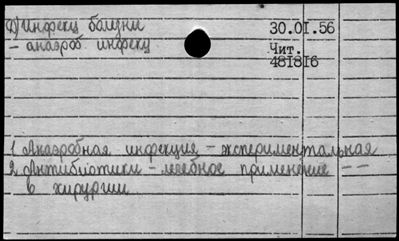 1) Инфекц болезни 30.01.56
- анаэроб инфекц Чит.
481816
1 Анаэробная инфекция - экспериментальная
2 Антибиотики - лечебное применение - -
в хирургии